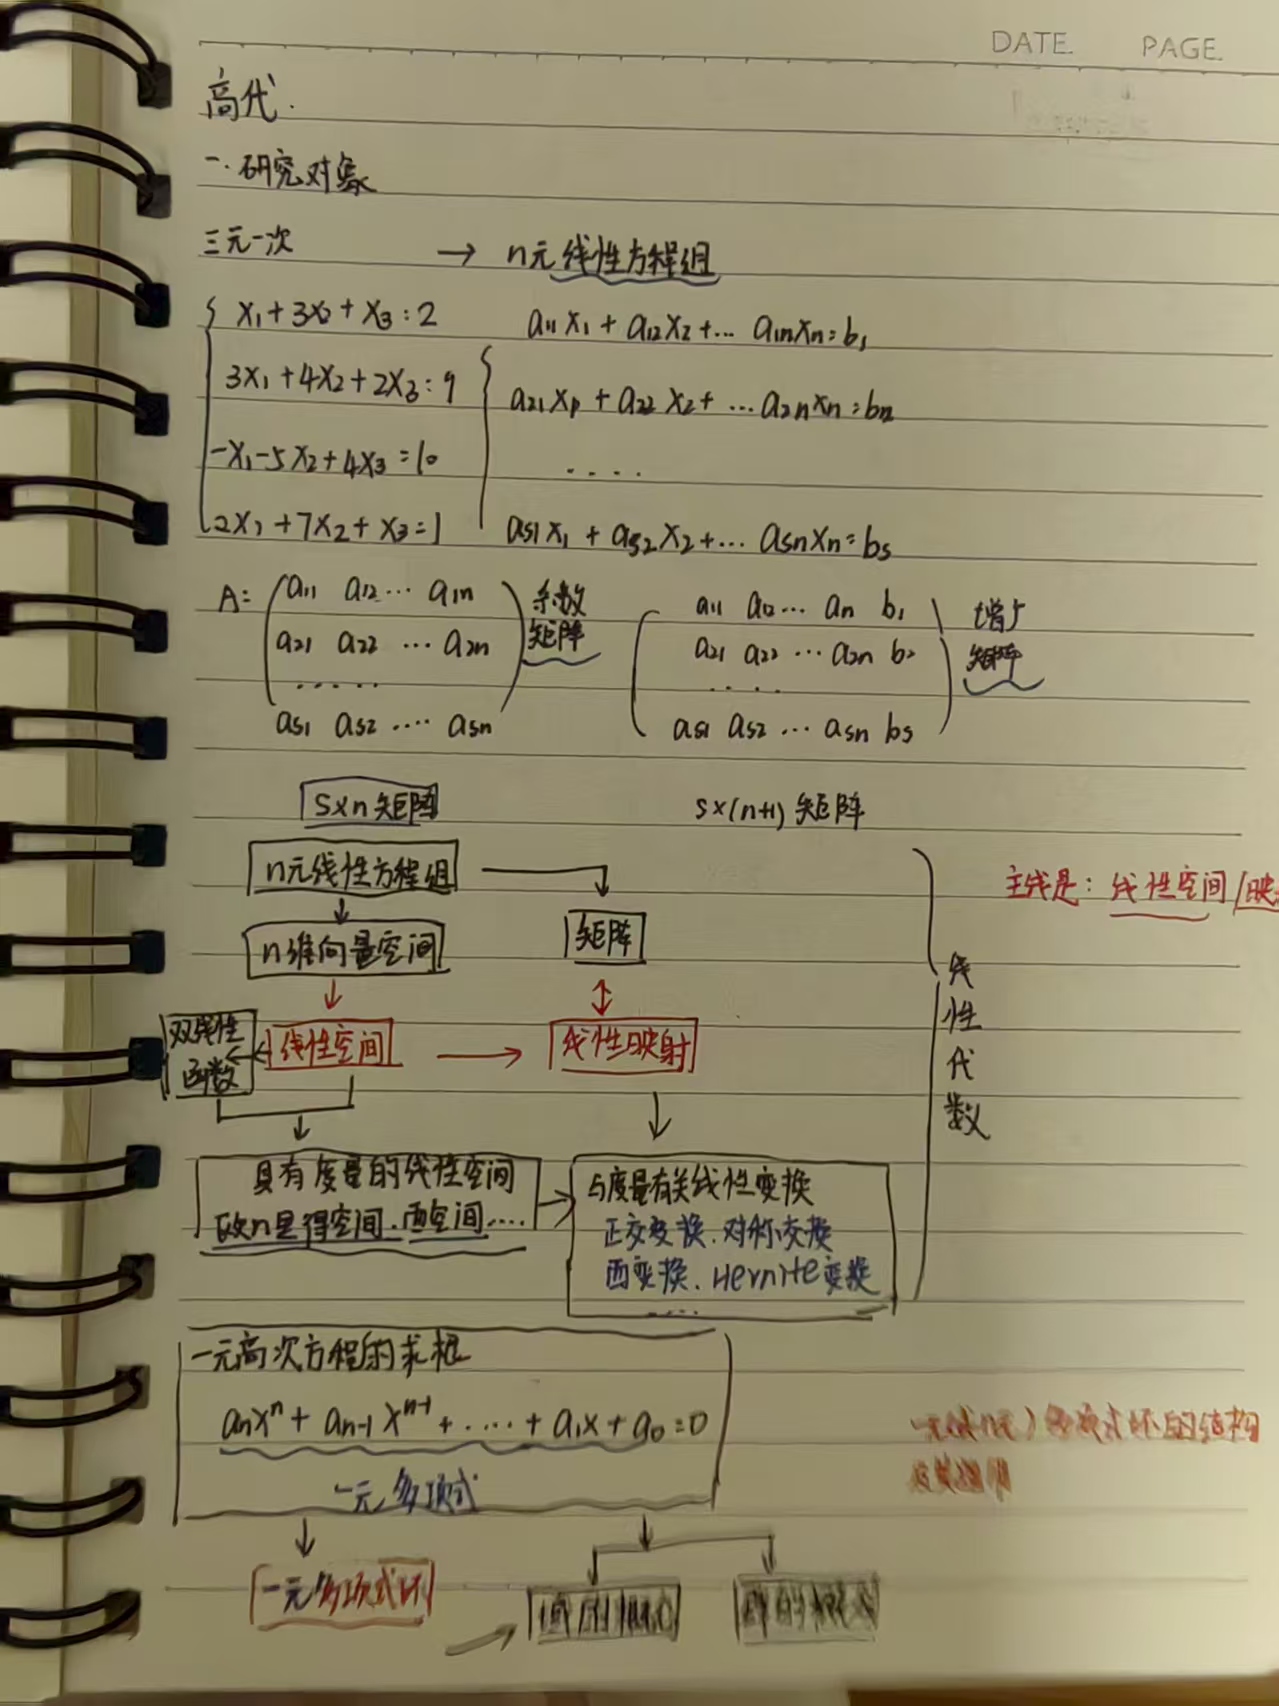 DATE. PAGE.
高代.
一.研究对象
三元一次 → n元线性方程组
x₁+3x₂+x₃=2
3x₁+4x₂+2x₃=9
-x₁-5x₂+4x₃=10
2x₁+7x₂+x₃=1
a₁₁x₁+a₁₂x₂+…a₁ₙxₙ=b₁
a₂₁x₁+a₂₂x₂+…a₂ₙxₙ=b₂
....
aₛ₁x₁+aₛ₂x₂+…aₛₙxₙ=bₛ
A=
a₁₁ a₁₂ … a₁ₙ
a₂₁ a₂₂ … a₂ₙ
......
aₛ₁ aₛ₂ …. aₛₙ
系数
矩阵
a₁₁ a₁₂ … aₙ b₁
a₂₁ a₂₂ … a₂ₙ b₂
....
aₛ₁ aₛ₂ … aₛₙ bₛ
增广
矩阵
s×n矩阵
s×(n+1)矩阵
n元线性方程组
n维向量空间
矩阵
主线是:线性空间/映
双线性
函数
线性空间
线性映射
线
性
代
数
具有度量的线性空间
欧几里得空间.酉空间....
与度量有关线性变换
正交变换.对称变换
酉变换.Hernite变换
....
一元高次方程的求根
aₙxⁿ+aₙ₋₁xⁿ⁻¹+....+a₁x+a₀=0
一元多项式
一元(或n元)多项式环的结构
一元多项式环
域的概念
群的概念